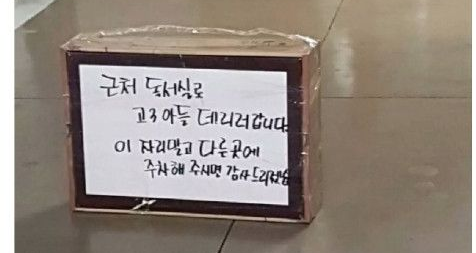 근처 독서실로
고3 아들 데리러갑니다
이 자리말고 다른곳에
주차해 주시면 감사드리겠습